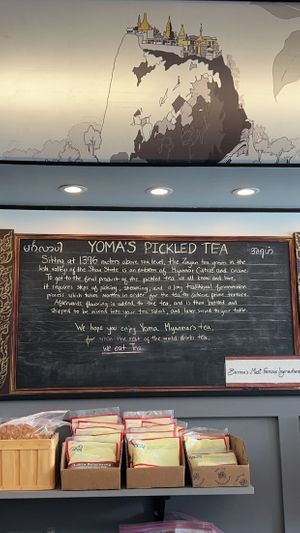 မင်္ဂလာပါ YOMA'S PICKLED TEA
Sitting at 1396 meters above sea level, the Zayan tea grown in the
lush valleys of the Shan State is an emblem of Myanmar Culture and cuisine.
To get to the final product of the pickled tea we all know and love,
it requires steps of picking, steaming, and a long traditional fermentation
process which takes months in order for the tea to achieve prime texture.
Afterwards flavoring is added to the tea, and is then packed and
shipped to be mixed into your tea salad, and later served to your table.
We hope you enjoy Yoma Myanmar's tea,
for when the rest of the world drinks tea,
we eat Tea.
Burma's Most Famous Ingredient